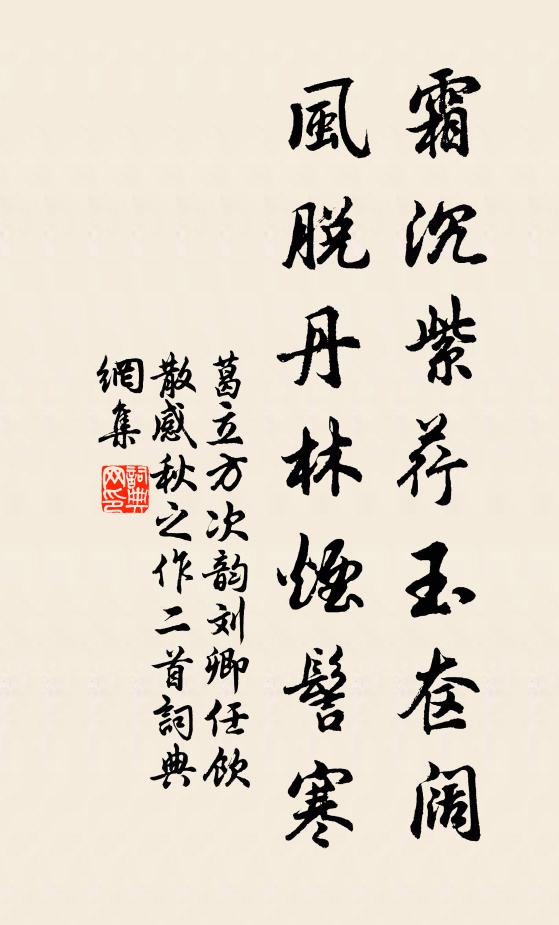 霜沉紫荇玉奁阔
風脱丹林煙髻寒
葛立方次韵刘卿任飲
散感秋之作二首詞典
網集
詞典
网印